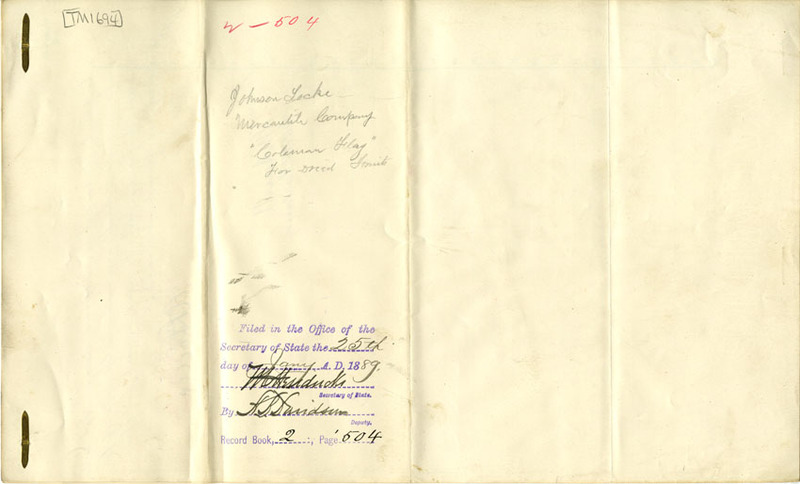 [TM1694]
2 - 504
Johnson Locke
Mercantile Company
"Coleman Flag"
For Dried Fruits
Filed in the Office of the
Secretary of State the 25th
day of Jany A. D. 1889.
W C Hendricks
Secretary of State.
By Davidson
Deputy,
Record Book, 2 :, Page 504